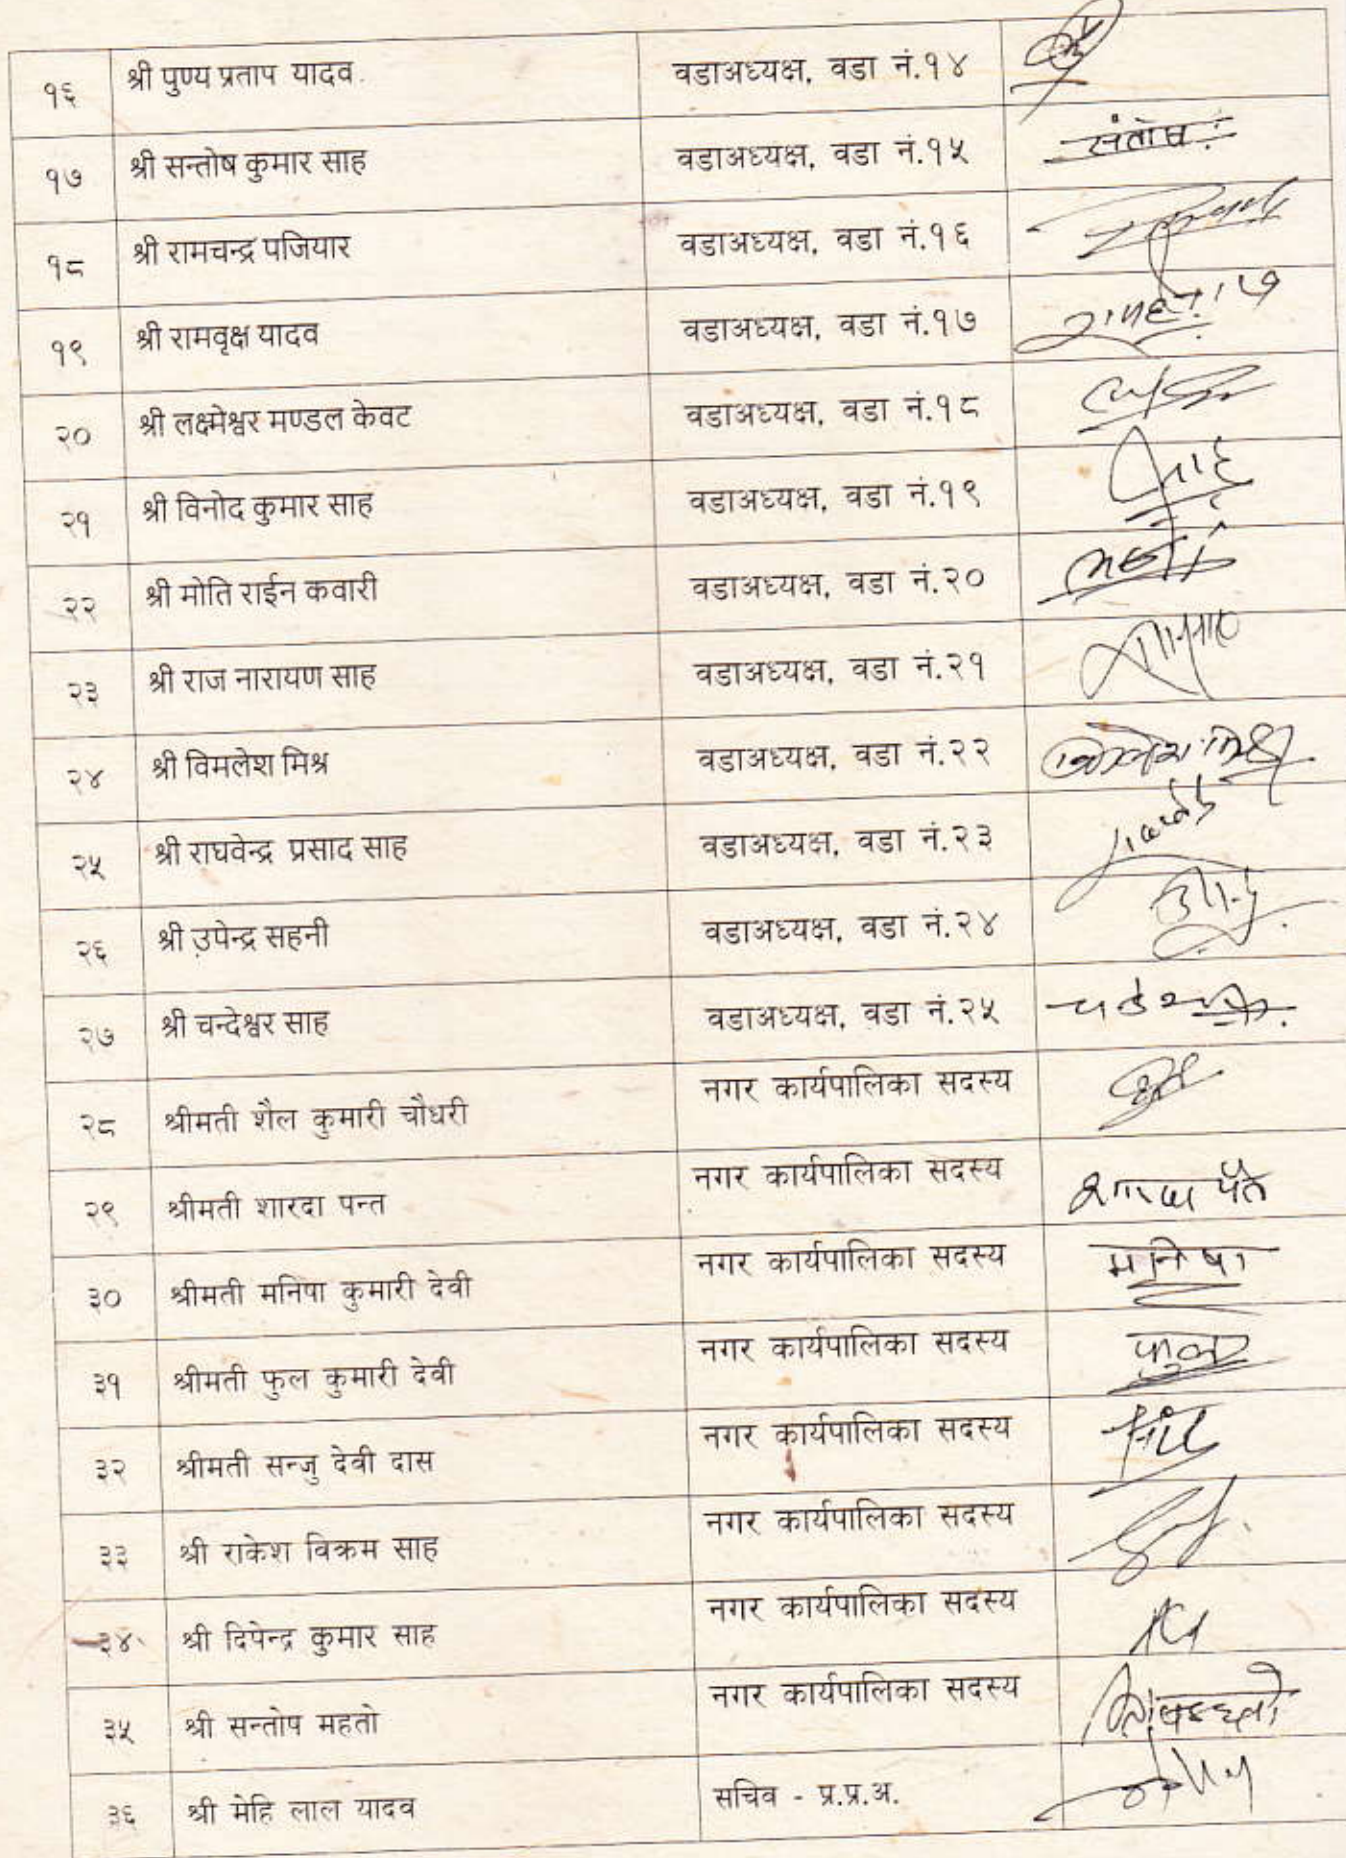 १६ श्री पुण्य प्रताप यादव वडाअध्यक्ष, वडा नं.१४
१७ श्री सन्तोष कुमार साह वडाअध्यक्ष, वडा नं.१५ संतोष
१८ श्री रामचन्द्र पजियार वडाअध्यक्ष, वडा नं.१६
१९ श्री रामवृक्ष यादव वडाअध्यक्ष, वडा नं.१७
२० श्री लक्ष्मेश्वर मण्डल केवट वडाअध्यक्ष, वडा नं.१८
२१ श्री विनोद कुमार साह वडाअध्यक्ष, वडा नं.१९
२२ श्री मोति राईन कवारी वडाअध्यक्ष, वडा नं.२०
२३ श्री राज नारायण साह वडाअध्यक्ष, वडा नं.२१
२४ श्री विमलेश मिश्र वडाअध्यक्ष, वडा नं.२२
२५ श्री राघवेन्द्र प्रसाद साह वडाअध्यक्ष, वडा नं.२३
२६ श्री उपेन्द्र सहनी वडाअध्यक्ष, वडा नं.२४
२७ श्री चन्देश्वर साह वडाअध्यक्ष, वडा नं.२५
२८ श्रीमती शैल कुमारी चौधरी नगर कार्यपालिका सदस्य
२९ श्रीमती शारदा पन्त नगर कार्यपालिका सदस्य शारदा पंत
३० श्रीमती मनिषा कुमारी देवी नगर कार्यपालिका सदस्य मनिषा
३१ श्रीमती फुल कुमारी देवी नगर कार्यपालिका सदस्य फुल
३२ श्रीमती सन्जु देवी दास नगर कार्यपालिका सदस्य
३३ श्री राकेश विक्रम साह नगर कार्यपालिका सदस्य
३४ श्री दिपेन्द्र कुमार साह नगर कार्यपालिका सदस्य
३५ श्री सन्तोष महतो नगर कार्यपालिका सदस्य
३६ श्री मेहि लाल यादव सचिव - प्र.प्र.अ.